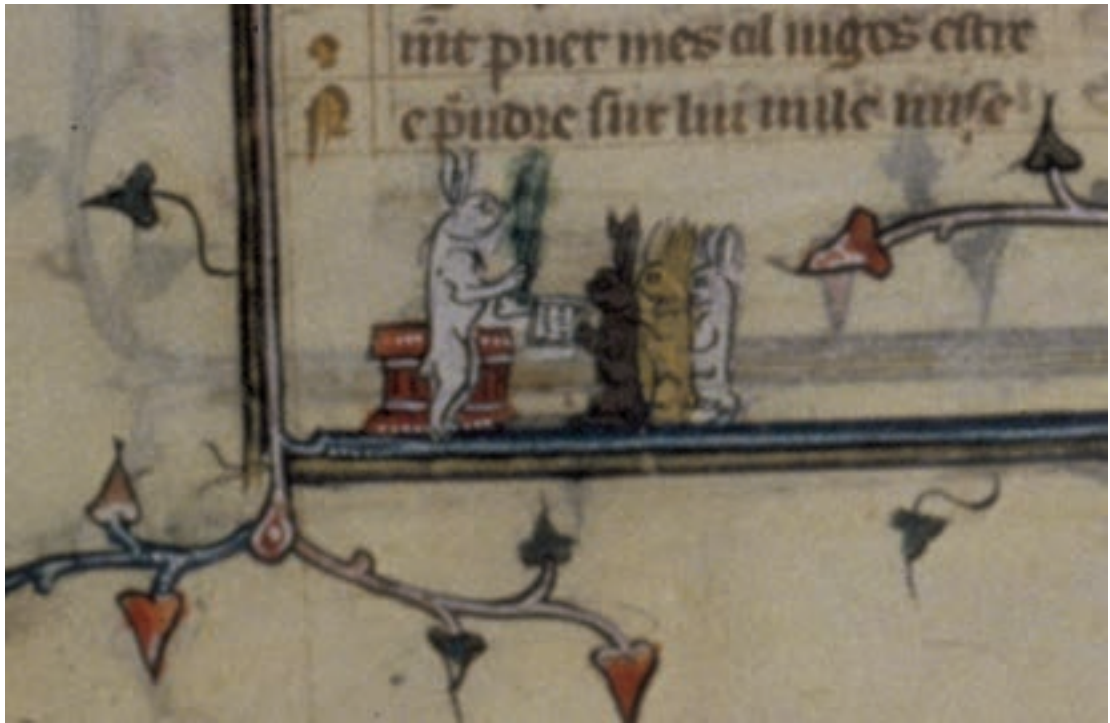 puet mes al iuges estre
N e p̄ndre sur lui nule mise